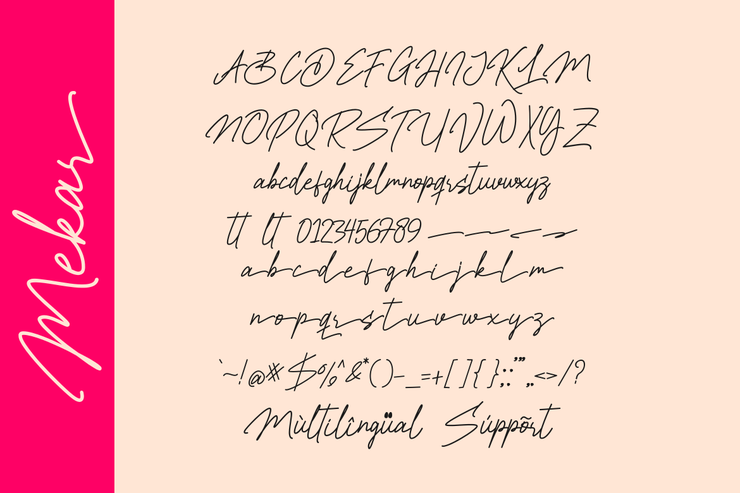 Mekar
ABCDEFGHIJKLM
NOPQRSTUVWXYZ
abcdefghijklmnopqrstuvwxyz
tt lt 0123456789
abcdefghijklm
nopqrstuvwxyz
`~!@#$%^&*()-_=+[]{};:'",.<>/?
Mùltilîngüal Súppõrt